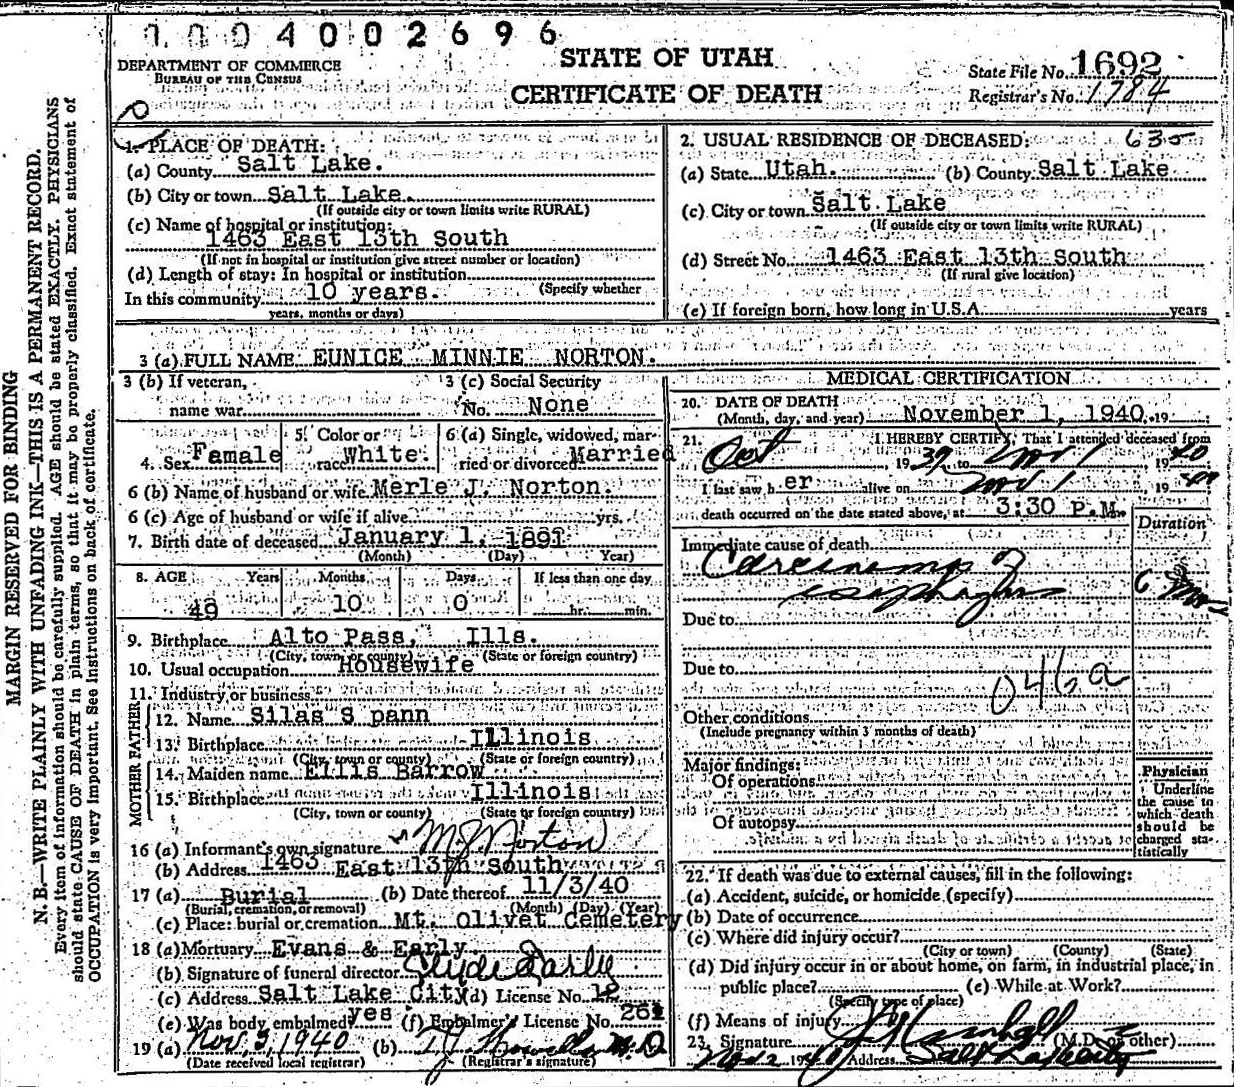 0004002696
DEPARTMENT OF COMMERCE
BUREAU OF THE CENSUS
STATE OF UTAH
CERTIFICATE OF DEATH
State File No. 1692
Registrar's No. 1784
MARGIN RESERVED FOR BINDING
N. B.—WRITE PLAINLY WITH UNFADING INK—THIS IS A PERMANENT RECORD.
Every item of information should be carefully supplied. AGE should be stated EXACTLY. PHYSICIANS
should state CAUSE OF DEATH in plain terms, so that it may be properly classified. Exact statement of
OCCUPATION is very important. See instructions on back of certificate.
1. PLACE OF DEATH:
(a) County Salt Lake.
(b) City or town Salt Lake.
(If outside city or town limits write RURAL)
(c) Name of hospital or institution:
1463 East 13th South
(If not in hospital or institution give street number or location)
(d) Length of stay: In hospital or institution
(Specify whether
In this community 10 years.
years, months or days)
2. USUAL RESIDENCE OF DECEASED: 635
(a) State Utah. (b) County Salt Lake
(c) City or town Salt Lake
(If outside city or town limits write RURAL)
(d) Street No. 1463 East 13th South
(If rural give location)
(e) If foreign born, how long in U.S.A. years
3 (a) FULL NAME EUNICE MINNIE NORTON.
3 (b) If veteran,
name war
3 (c) Social Security
No. None
4. Sex Famale
5. Color or
race White.
6 (a) Single, widowed, mar-
ried or divorced Married
6 (b) Name of husband or wife Merle J. Norton.
6 (c) Age of husband or wife if alive yrs.
7. Birth date of deceased January 1, 1891
(Month) (Day) Year)
8. AGE Years Months Days If less than one day
49 10 0 hr. min.
9. Birthplace Alto Pass, Ills.
(City, town, or county) (State or foreign country)
10. Usual occupation Housewife
11. Industry or business
FATHER
12. Name Silas S pann
13. Birthplace Illinois
(City, town or county) (State or foreign country)
MOTHER
14. Maiden name Ellis Barrow
15. Birthplace Illinois
(City, town or county) (State or foreign country)
16 (a) Informant's own signature M J Norton
(b) Address 1463 East 13th South
17 (a) Burial (b) Date thereof 11/3/40
(Burial, cremation, or removal) (Month) (Day) (Year)
(c) Place: burial or cremation Mt. Olivet Cemetery
18 (a) Mortuary Evans & Early
(b) Signature of funeral director Clyde Earlie
(c) Address Salt Lake City (d) License No. 12
(e) Was body embalmed? yes (f) Embalmer's License No. 261
19 (a) Nov, 3, 1940 (b) M.D.
(Date received local registrar) (Registrar's signature)
MEDICAL CERTIFICATION
20. DATE OF DEATH
(Month, day, and year) November 1, 1940. 19
21. I HEREBY CERTIFY, That I attended deceased from
Oct 1939 to Nov 1 1940
I last saw h er alive on Nov 1 1940
death occurred on the date stated above, at 3:30 P.M.
Duration
Immediate cause of death
Carcinoma of
esophagus 6 mos
Due to
Due to
046a
Other conditions
(Include pregnancy within 3 months of death)
Major findings:
Of operations
Of autopsy
Physician
Underline
the cause to
which death
should be
charged sta-
tistically
22. If death was due to external causes, fill in the following:
(a) Accident, suicide, or homicide (specify)
(b) Date of occurrence
(c) Where did injury occur?
(City or town) (County) (State)
(d) Did injury occur in or about home, on farm, in industrial place, in
public place? (e) While at Work?
(Specify type of place)
(f) Means of injury
23. Signature (M.D. or other)
Nov 2 1940 Address Salt Lake City